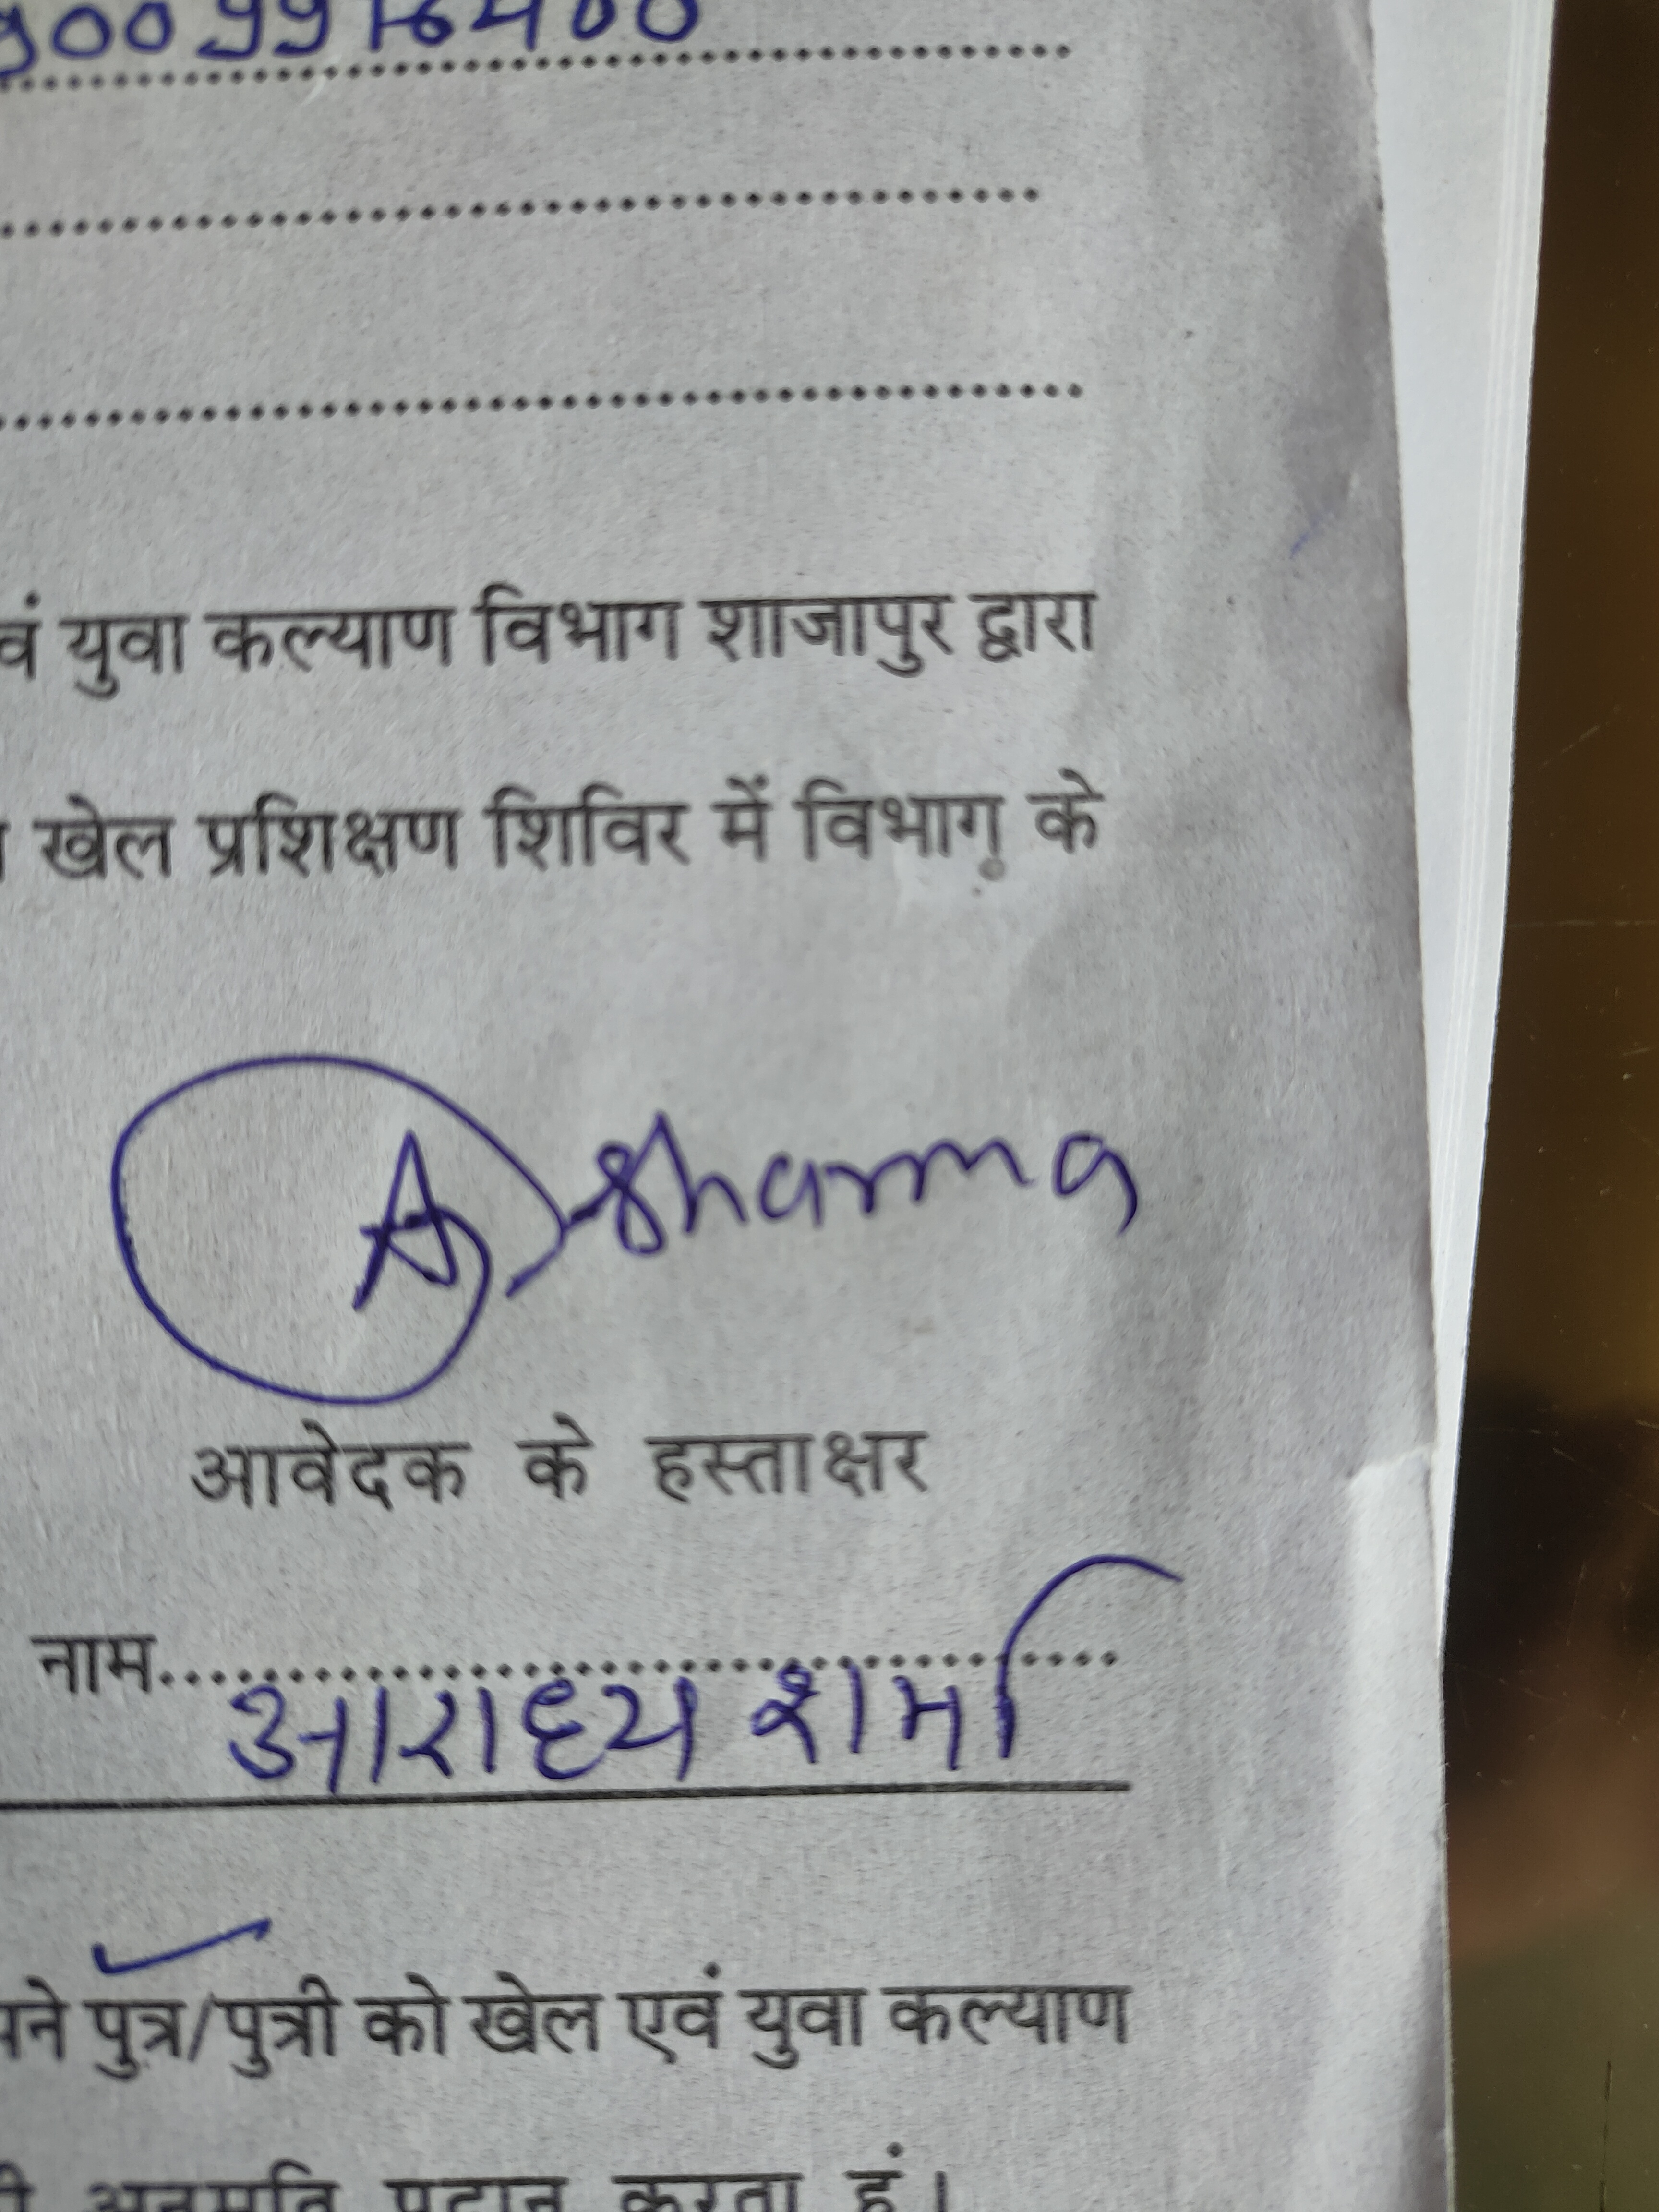 वं युवा कल्याण विभाग शाजापुर द्वारा
खेल प्रशिक्षण शिविर में विभाग के
A Sharma
आवेदक के हस्ताक्षर
नाम....................
आराध्य शर्मा
पने पुत्र/पुत्री को खेल एवं युवा कल्याण
अनुमति प्रदान करता हूं।